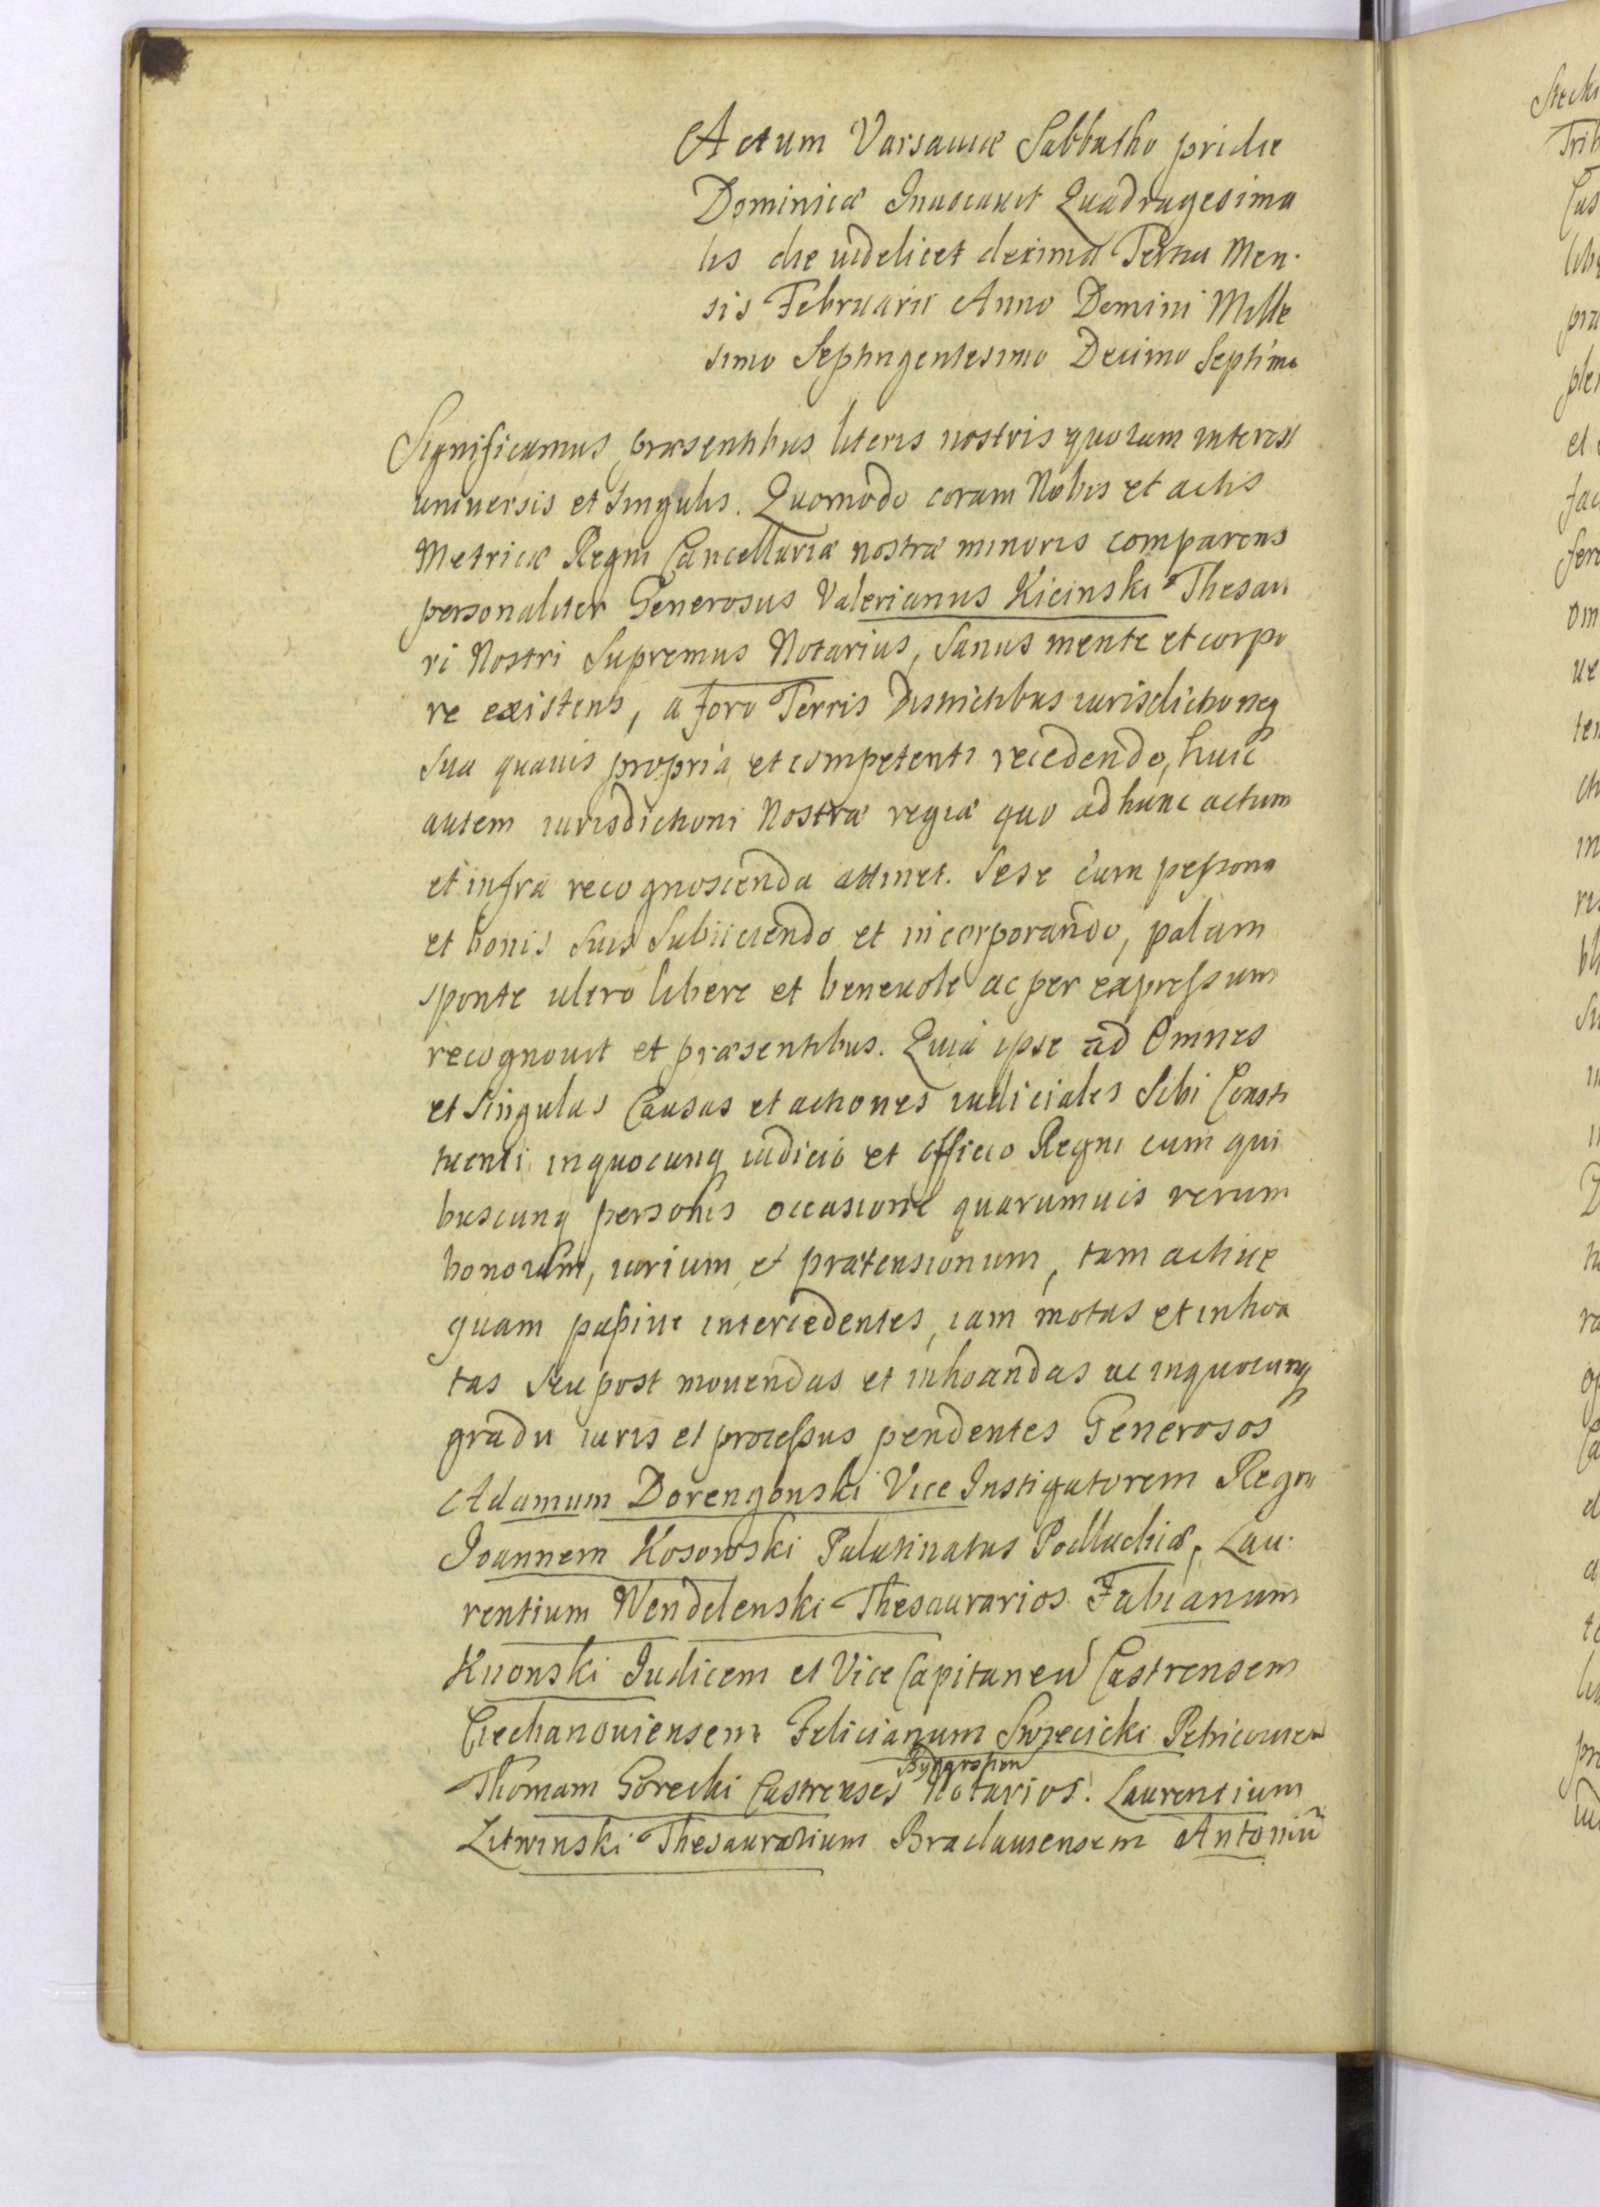 Actum Varsaviæ Sabbatho pridie
Dominicæ Inuocauit Quadragesima
lis die uidelicet decima Tertia Men-
sis Februarii Anno Domini Mille
simo Septingentesimo Decimo Septimo
Significamus præsentibus literis nostris quorum interest
universis et singulis. Quomodo coram Nobis et actis
Metricæ Regni Cancellariæ nostræ minoris comparens
personaliter Generosus Valerianus Kicinski Thesau
ri Nostri Supremus Notarius, Sanus mente et corpo
re existens, a foro Terris Districtibus iurisdictioneq
sua quauis propria et competenti recedendo, huic
autem iurisdictioni Nostræ regiæ quo ad hunc actum
et infra recognoscenda attinet. Sese cum persona
et bonis suis Subiiciendo et incorporando, palam
sponte ultro libere et beneuole ac per expressum
recognouit et præsentibus. Quia ipse ad Omnes
et Singulas Causas et actiones iudiciales Sibi Consti
tuenti inquocunq iudicio et officio Regni cum qui
buscunq personis occasione quarumuis rerum
bonorum, iurium et prætensionum, tam actiue
quam passiue intercedentes, iam motas et inhoa
tas seu post mouendas et inhoandas ac inquocunq
gradu iuris et processus pendentes Generosos
Adamum Dorengonski Vice Instigatorem Regni
Joannem Kosowski Palatinatus Podlachiæ, Lau-
rentium Wendelenski Thesaurarios Fabianum
Kuonski Iudicem et Vice Capitaneũ Castrensem
Ciechanouiensem Felicianum Swiecicki Petricouien
Thomam Gorecki Castrenses Bydgostien Notarios. Laurentium
Litwinski Thesaurarium Braclauiensem Antoniũ